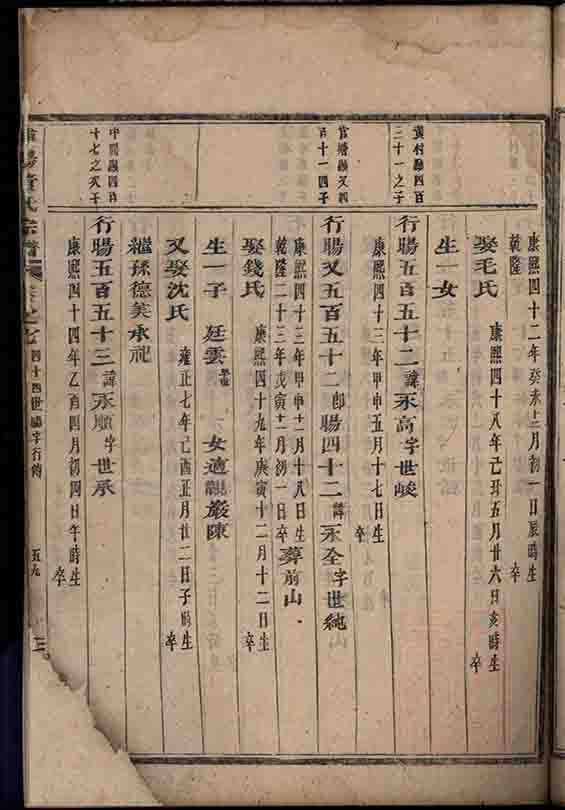 康熙四十二年癸未十二月初一日辰時生
乾隆 卒
娶毛氏 康熙四十八年己丑五月廿六日亥時生 卒
生一女
黃村 四百三十一之子
行腸五百五十二 諱永高字世峻
康熙四十三年甲申五月十七日生 卒
官塘 又四百十一四子
行腸又五百五十二 郎腸四十二 諱永全字世純
康熙四十三年甲申十二月十八日生
乾隆二十三年戊寅十二月初一日卒 葬前山
娶錢氏 康熙四十九年庚寅十二月十二日生 卒
生一子 廷雲 女適 巖陳
又娶沈氏 雍正七年己酉正月廿二日子時生 卒
繼孫德美承祀
四百十七之次子
行腸五百五十三 諱永順字世承
康熙四十四年乙酉四月初四日午時生 卒
氏宗譜 卷之七 四十四世腸字行傳 五九